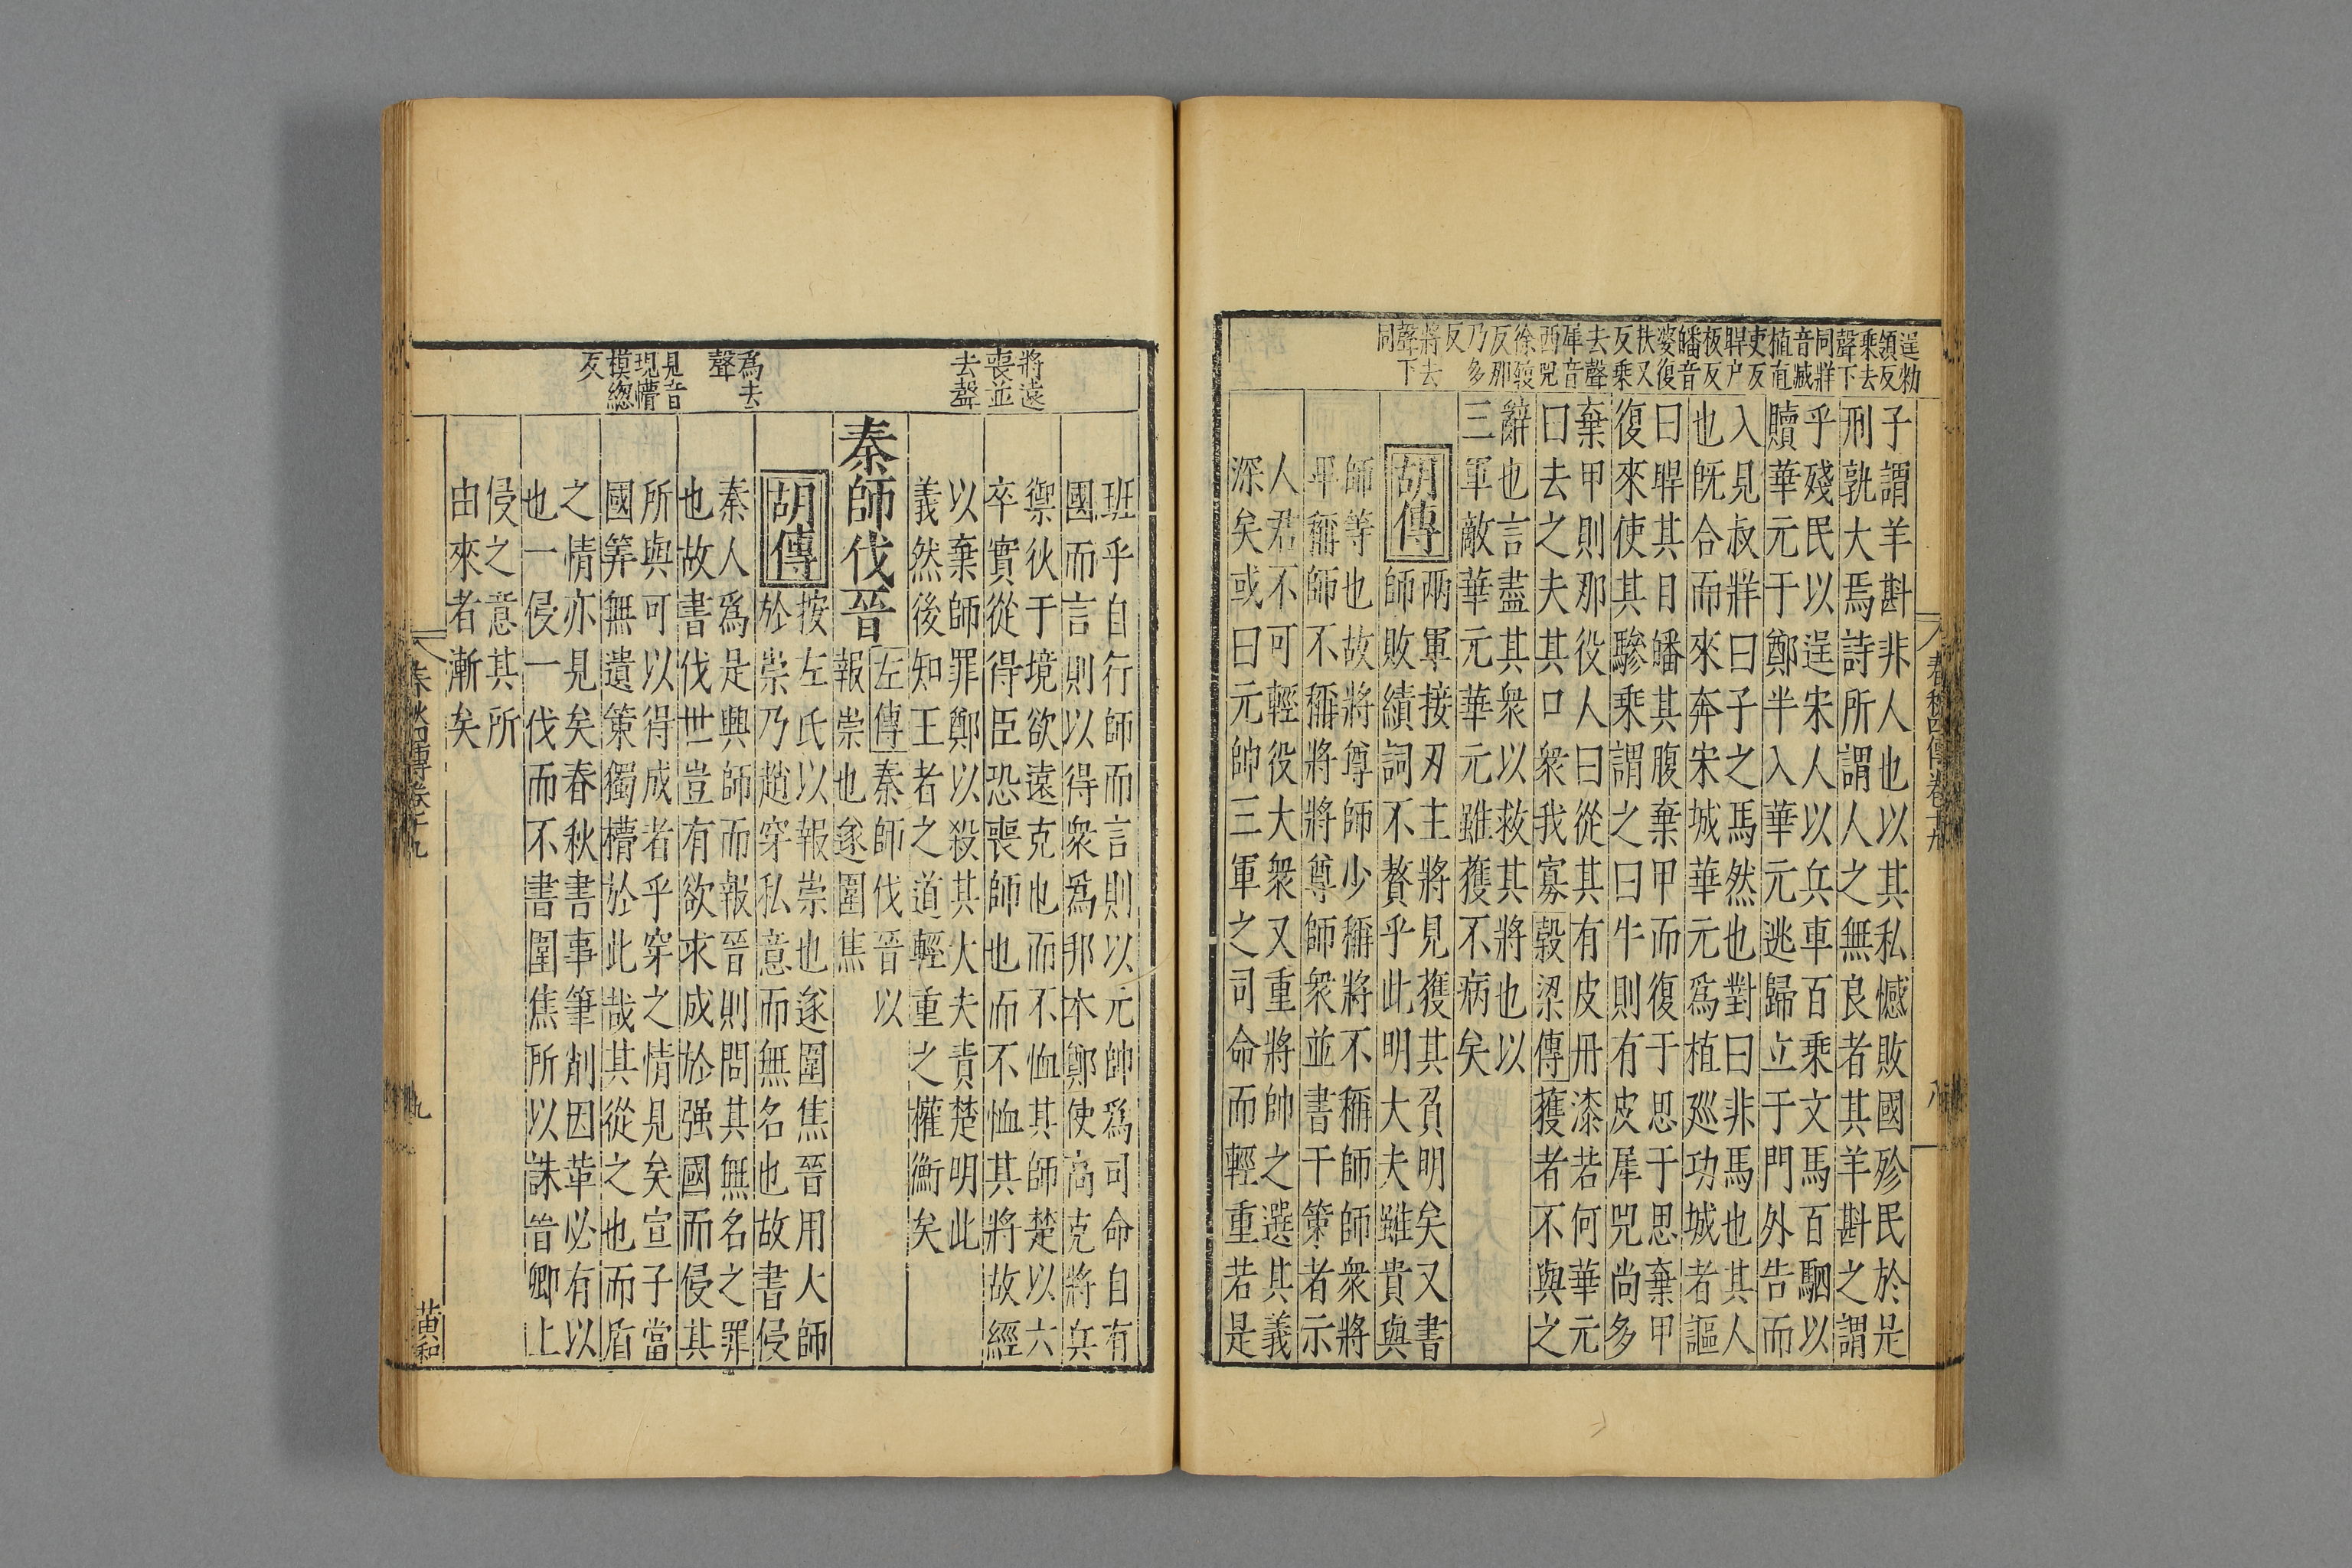 逞勑
領反
乘去
聲下
同牂
音臧
植直
吏反
睅户
板反
皤音
婆復
扶又
反乘
去聲
犀音
西兕
徐𡲬
反那
乃多
反
將去
聲下
同
子謂羊斟非人也以其私憾敗國殄民於是
刑孰大焉詩所謂人之無良者其羊斟之謂
乎殘民以逞宋人以兵車百乘文馬百駟以
贖華元于鄭半入華元逃歸立于門外告而
入見叔牂曰子之馬然也對曰非馬也其人
也旣合而來奔宋城華元爲植廵功城者謳
曰睅其目皤其腹棄甲而復于思于思棄甲
復來使其驂乘謂之曰牛則有皮犀兕尚多
棄甲則那役人曰從其有皮丹漆若何華元
曰去之夫其口衆我寡穀梁傳獲者不與之
辭也言盡其衆以救其將也以
三軍敵華元華元雖獲不病矣
胡傳
兩軍接刃主將見獲其負明矣又書
師敗績詞不贅乎此明大夫雖貴與
師等也故將尊師少稱將不稱師師衆將
卑稱師不稱將將尊師衆並書于策者示
人君不可輕役大衆又重將帥之選其義
深矣或曰元帥三軍之司命而輕重若是
春秋四傳卷十九
八
將遠
喪並
去聲
爲去
聲
見音
現㦬
模緫
反
班乎自行師而言則以元帥爲司命自有
國而言則以得衆爲邦本鄭使高克將兵
禦狄于境欲遠克也而不恤其師楚以六
卒實從得臣恐喪師也而不恤其將故經
以棄師罪鄭以殺其大夫責楚明此
義然後知王者之道輕重之權衡矣
秦師伐晉
左傳秦師伐晉以
報崇也遂圍焦
胡傳
按左氏以報崇也遂圍焦晉用大師
於崇乃趙穿私意而無名也故書侵
秦人爲是興師而報晉則問其無名之罪
也故書伐世豈有欲求成於强國而侵其
所與可以得成者乎穿之情見矣宣子當
國筭無遺策獨懵於此哉其從之也而盾
之情亦見矣春秋書事筆削因革必有以
也一侵一伐而不書圍焦所以誅晉卿上
侵之意其所
由來者漸矣
春秋四傳卷十九
九
黄和